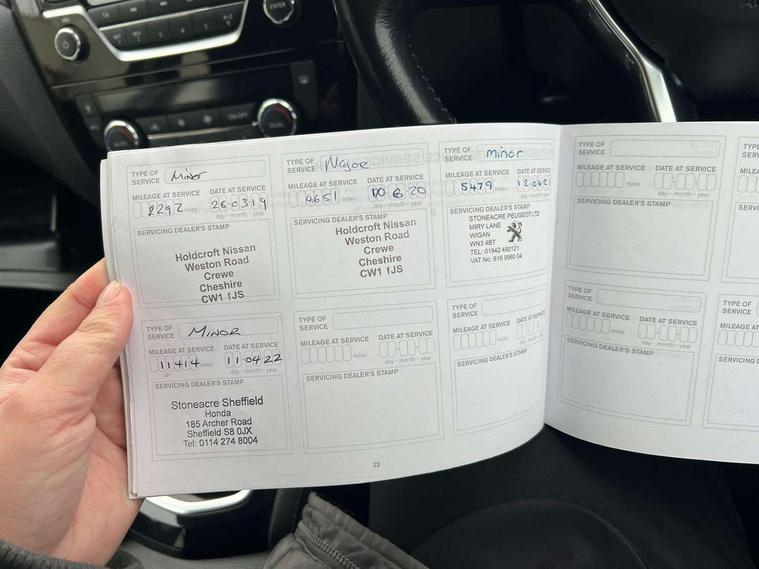 TYPE OF SERVICE Minor
MILEAGE AT SERVICE DATE AT SERVICE
2292 miles 260319
day - month - year
SERVICING DEALER'S STAMP
Holdcroft Nissan
Weston Road
Crewe
Cheshire
CW1 1JS
TYPE OF SERVICE Major
MILEAGE AT SERVICE DATE AT SERVICE
4651 miles 10 6 20
day - month - year
SERVICING DEALER'S STAMP
Holdcroft Nissan
Weston Road
Crewe
Cheshire
CW1 1JS
TYPE OF SERVICE minor
MILEAGE AT SERVICE DATE AT SERVICE
5479 miles 120421
day - month - year
SERVICING DEALER'S STAMP
STONEACRE PEUGEOT LTD
MIRY LANE
WIGAN
WN3 4BT
TEL: 01942 492121
VAT No: 616 9960 04
TYPE OF SERVICE
MILEAGE AT SERVICE DATE AT SERVICE
miles
day - month - year
SERVICING DEALER'S STAMP
TYPE OF SERVICE MINOR
MILEAGE AT SERVICE DATE AT SERVICE
11414 miles 110422
day - month - year
SERVICING DEALER'S STAMP
Stoneacre Sheffield
Honda
185 Archer Road
Sheffield S8 0JX
Tel: 0114 274 8004
TYPE OF SERVICE
MILEAGE AT SERVICE DATE AT SERVICE
miles
day - month - year
SERVICING DEALER'S STAMP
TYPE OF SERVICE
MILEAGE AT SERVICE DATE AT SERVICE
miles
day - month - year
SERVICING DEALER'S STAMP
TYPE OF SERVICE
MILEAGE AT SERVICE DATE AT SERVICE
miles
day - month - year
SERVICING DEALER'S STAMP
22